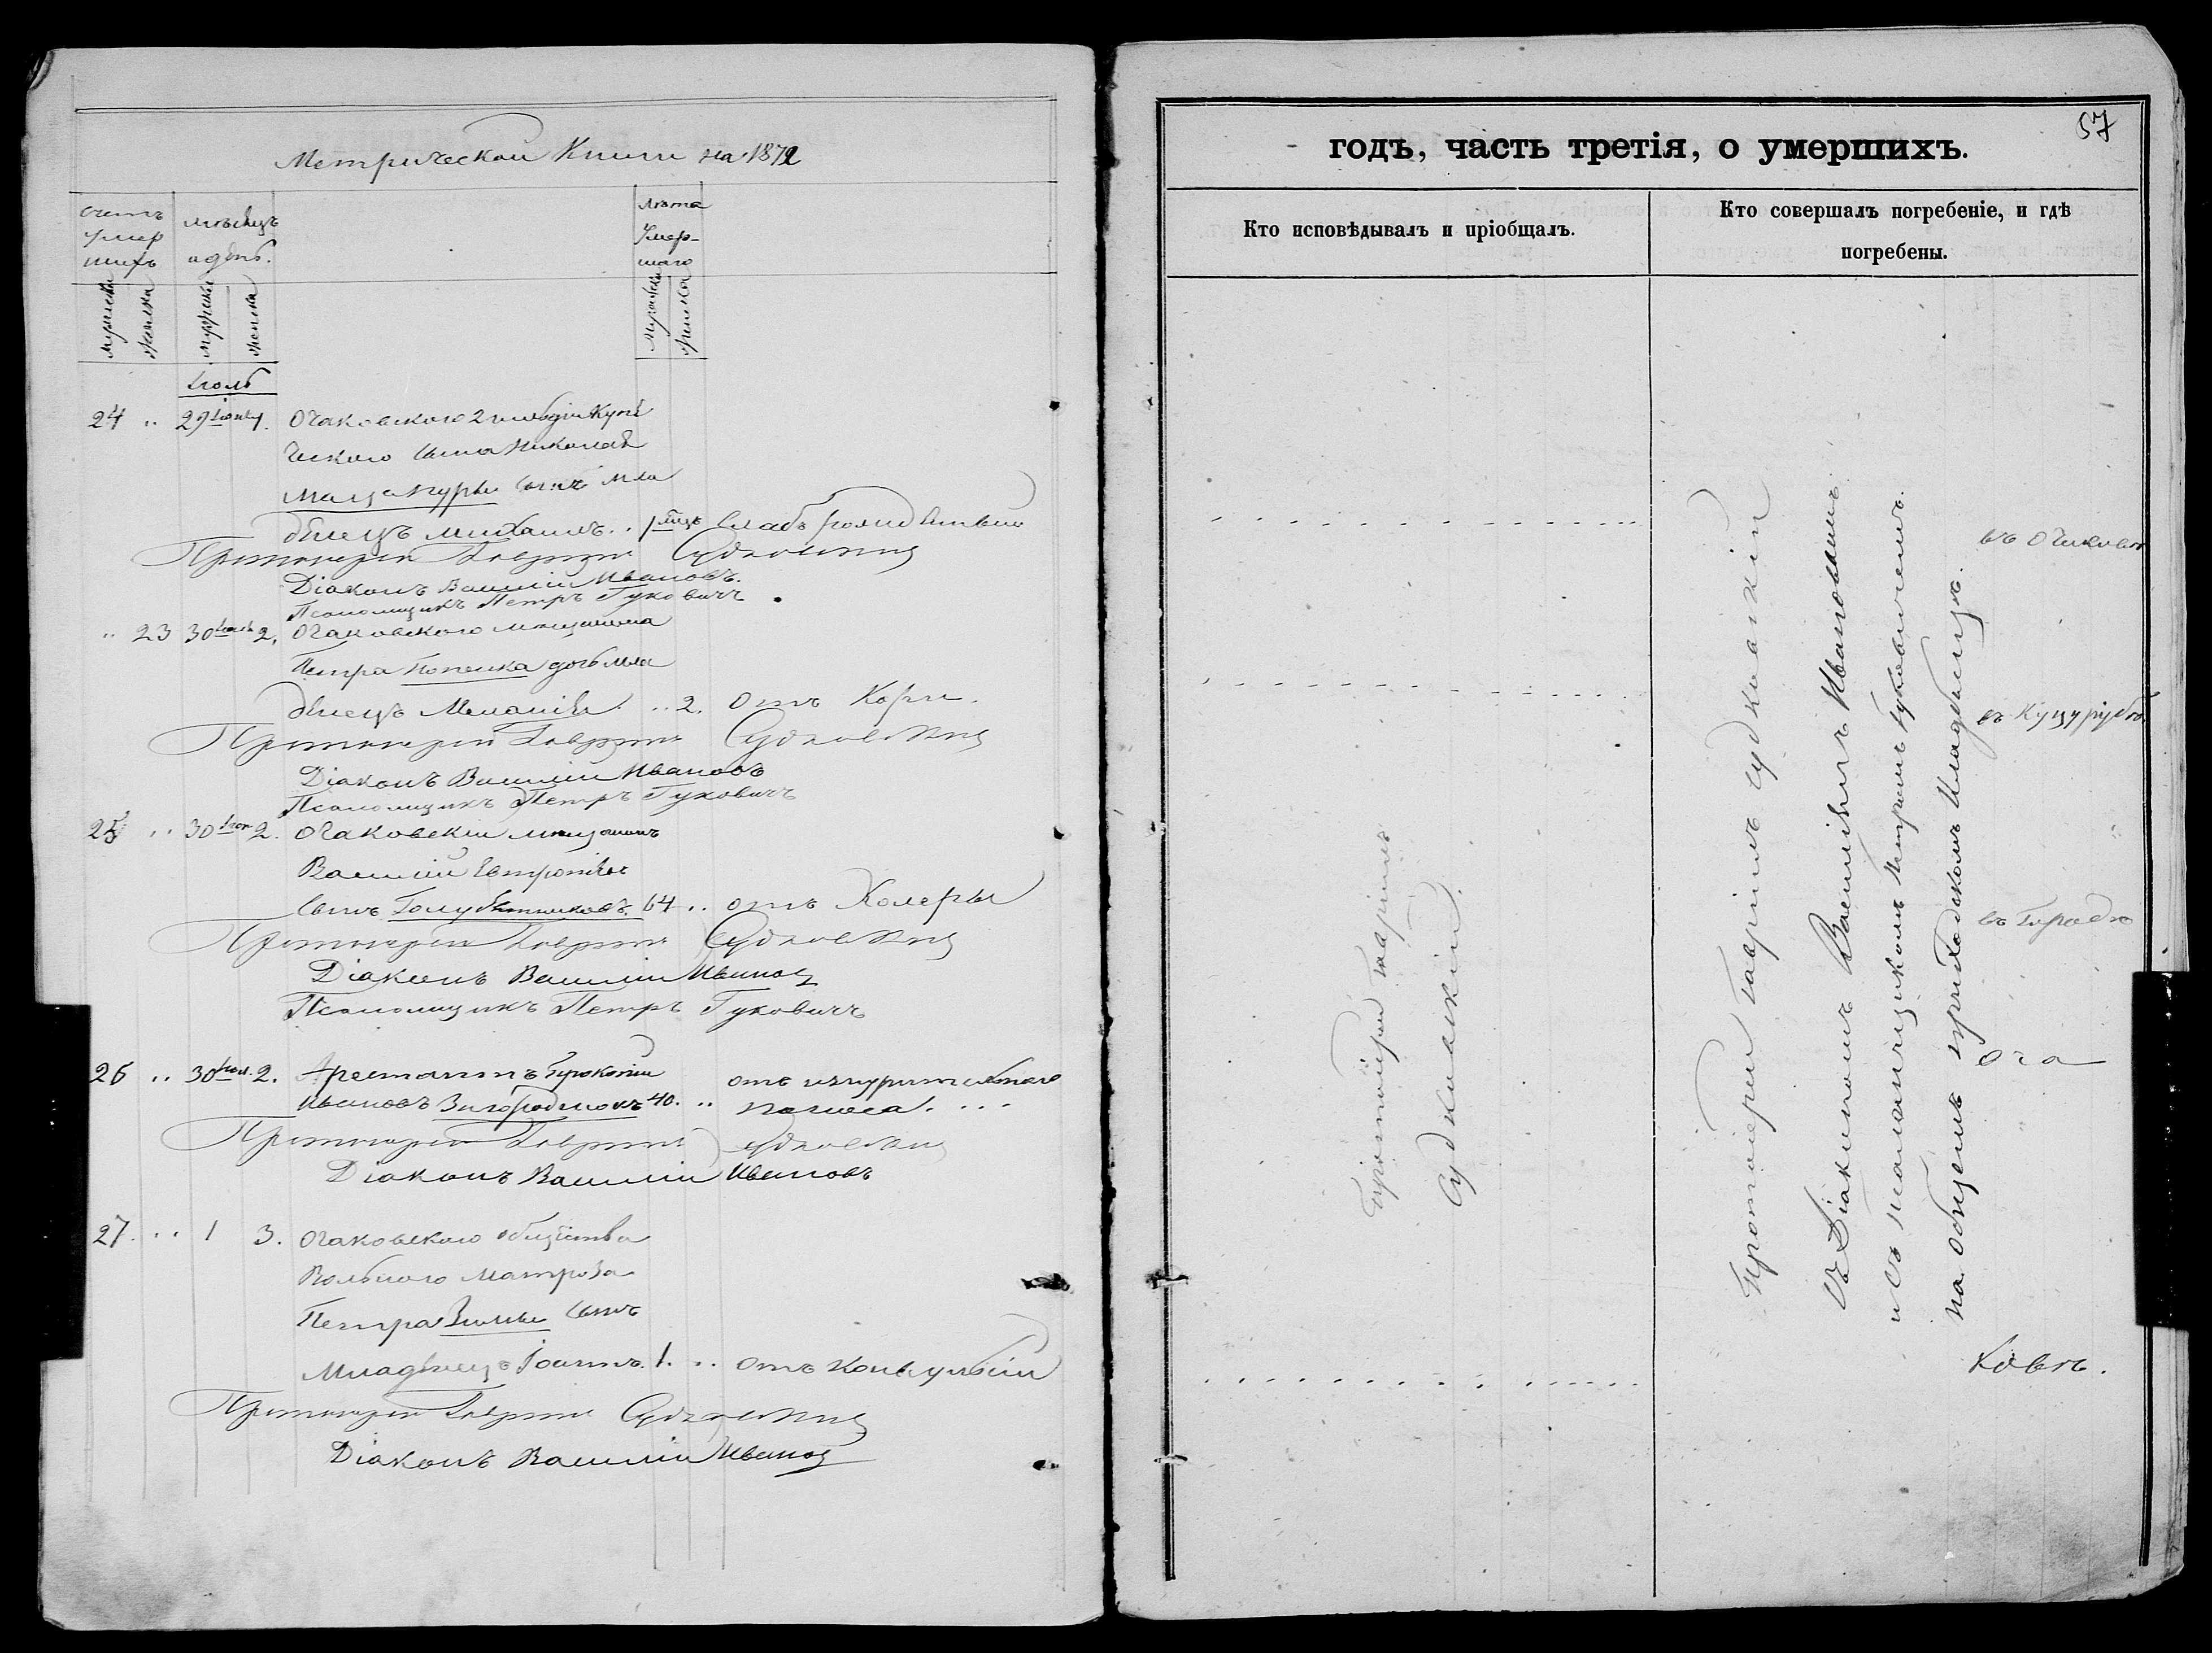 Метрической Книги на 1872
счетъ умер шихъ
мѣсяцъ и день.
Лѣта Умер- шаго
мужеска
женска
мужеска
женска
мужеска
женска
Іюль
24 .. 29 Іюня 1. Очаковского 2 гильдіи Купе
ческого сына Николая
Мацакуры сынъ мла
денецъ Михаилъ. . 1 мѣц. Слабъ рожденіемъ
Протоіерей Гавріилъ Судковскій
Діаконъ Василій Ивановъ.
Псаломщикъ Петръ Гуковичъ
.. 23 30 Іюня 2. Очаковского мѣщанина
Петра Попенка дочь мла
денецъ Меланія .. 2. Отъ Кори.
Протоіерей Гавріилъ Судковскій
Діаконъ Василій Ивановъ
Псаломщикъ Петръ Гуковичъ
25 .. 30 Іюн 2. Очаковскій мѣщанинъ
Василій Евтропіевъ
сынъ Голубятниковъ. 64 .. отъ Холеры
Протоіерей Гавріилъ Судковскій
Діаконъ Василій Ивановъ
Псаломщикъ Петръ Гуковичъ
26 .. 30 Іюн. 2. Арестантъ Прокопій отъ изнурительнаго
Ивановъ Загороднюкъ 40. .. поноса. . . .
Протоіерей Гавріилъ Судковскій
Діаконъ Василій Ивановъ
27. .. 1 3. Очаковского общества
Вольного Матроза
Петра Зимы сынъ
Младенецъ Іоаннъ. 1. .. отъ Конвульсіи
Протоіерей Гавріилъ Судковскій
Діаконъ Василій Ивановъ
57
годъ, часть третія, о умершихъ.
Кто исповѣдывалъ и пріобщалъ.
Кто совершалъ погребеніе, и гдѣ
погребены.
Протоіерей Гавріилъ
Судковскій.
Протоіерей Гавріилъ Судковскій
съ Діакономъ Василіемъ Ивановымъ
и съ псаломщикомъ Петромъ Гуковичемъ.
на общемъ приходскомъ кладбищѣ.
въ Очаковѣ
въ Куцурубѣ
въ Городѣ
Оча
ковѣ.